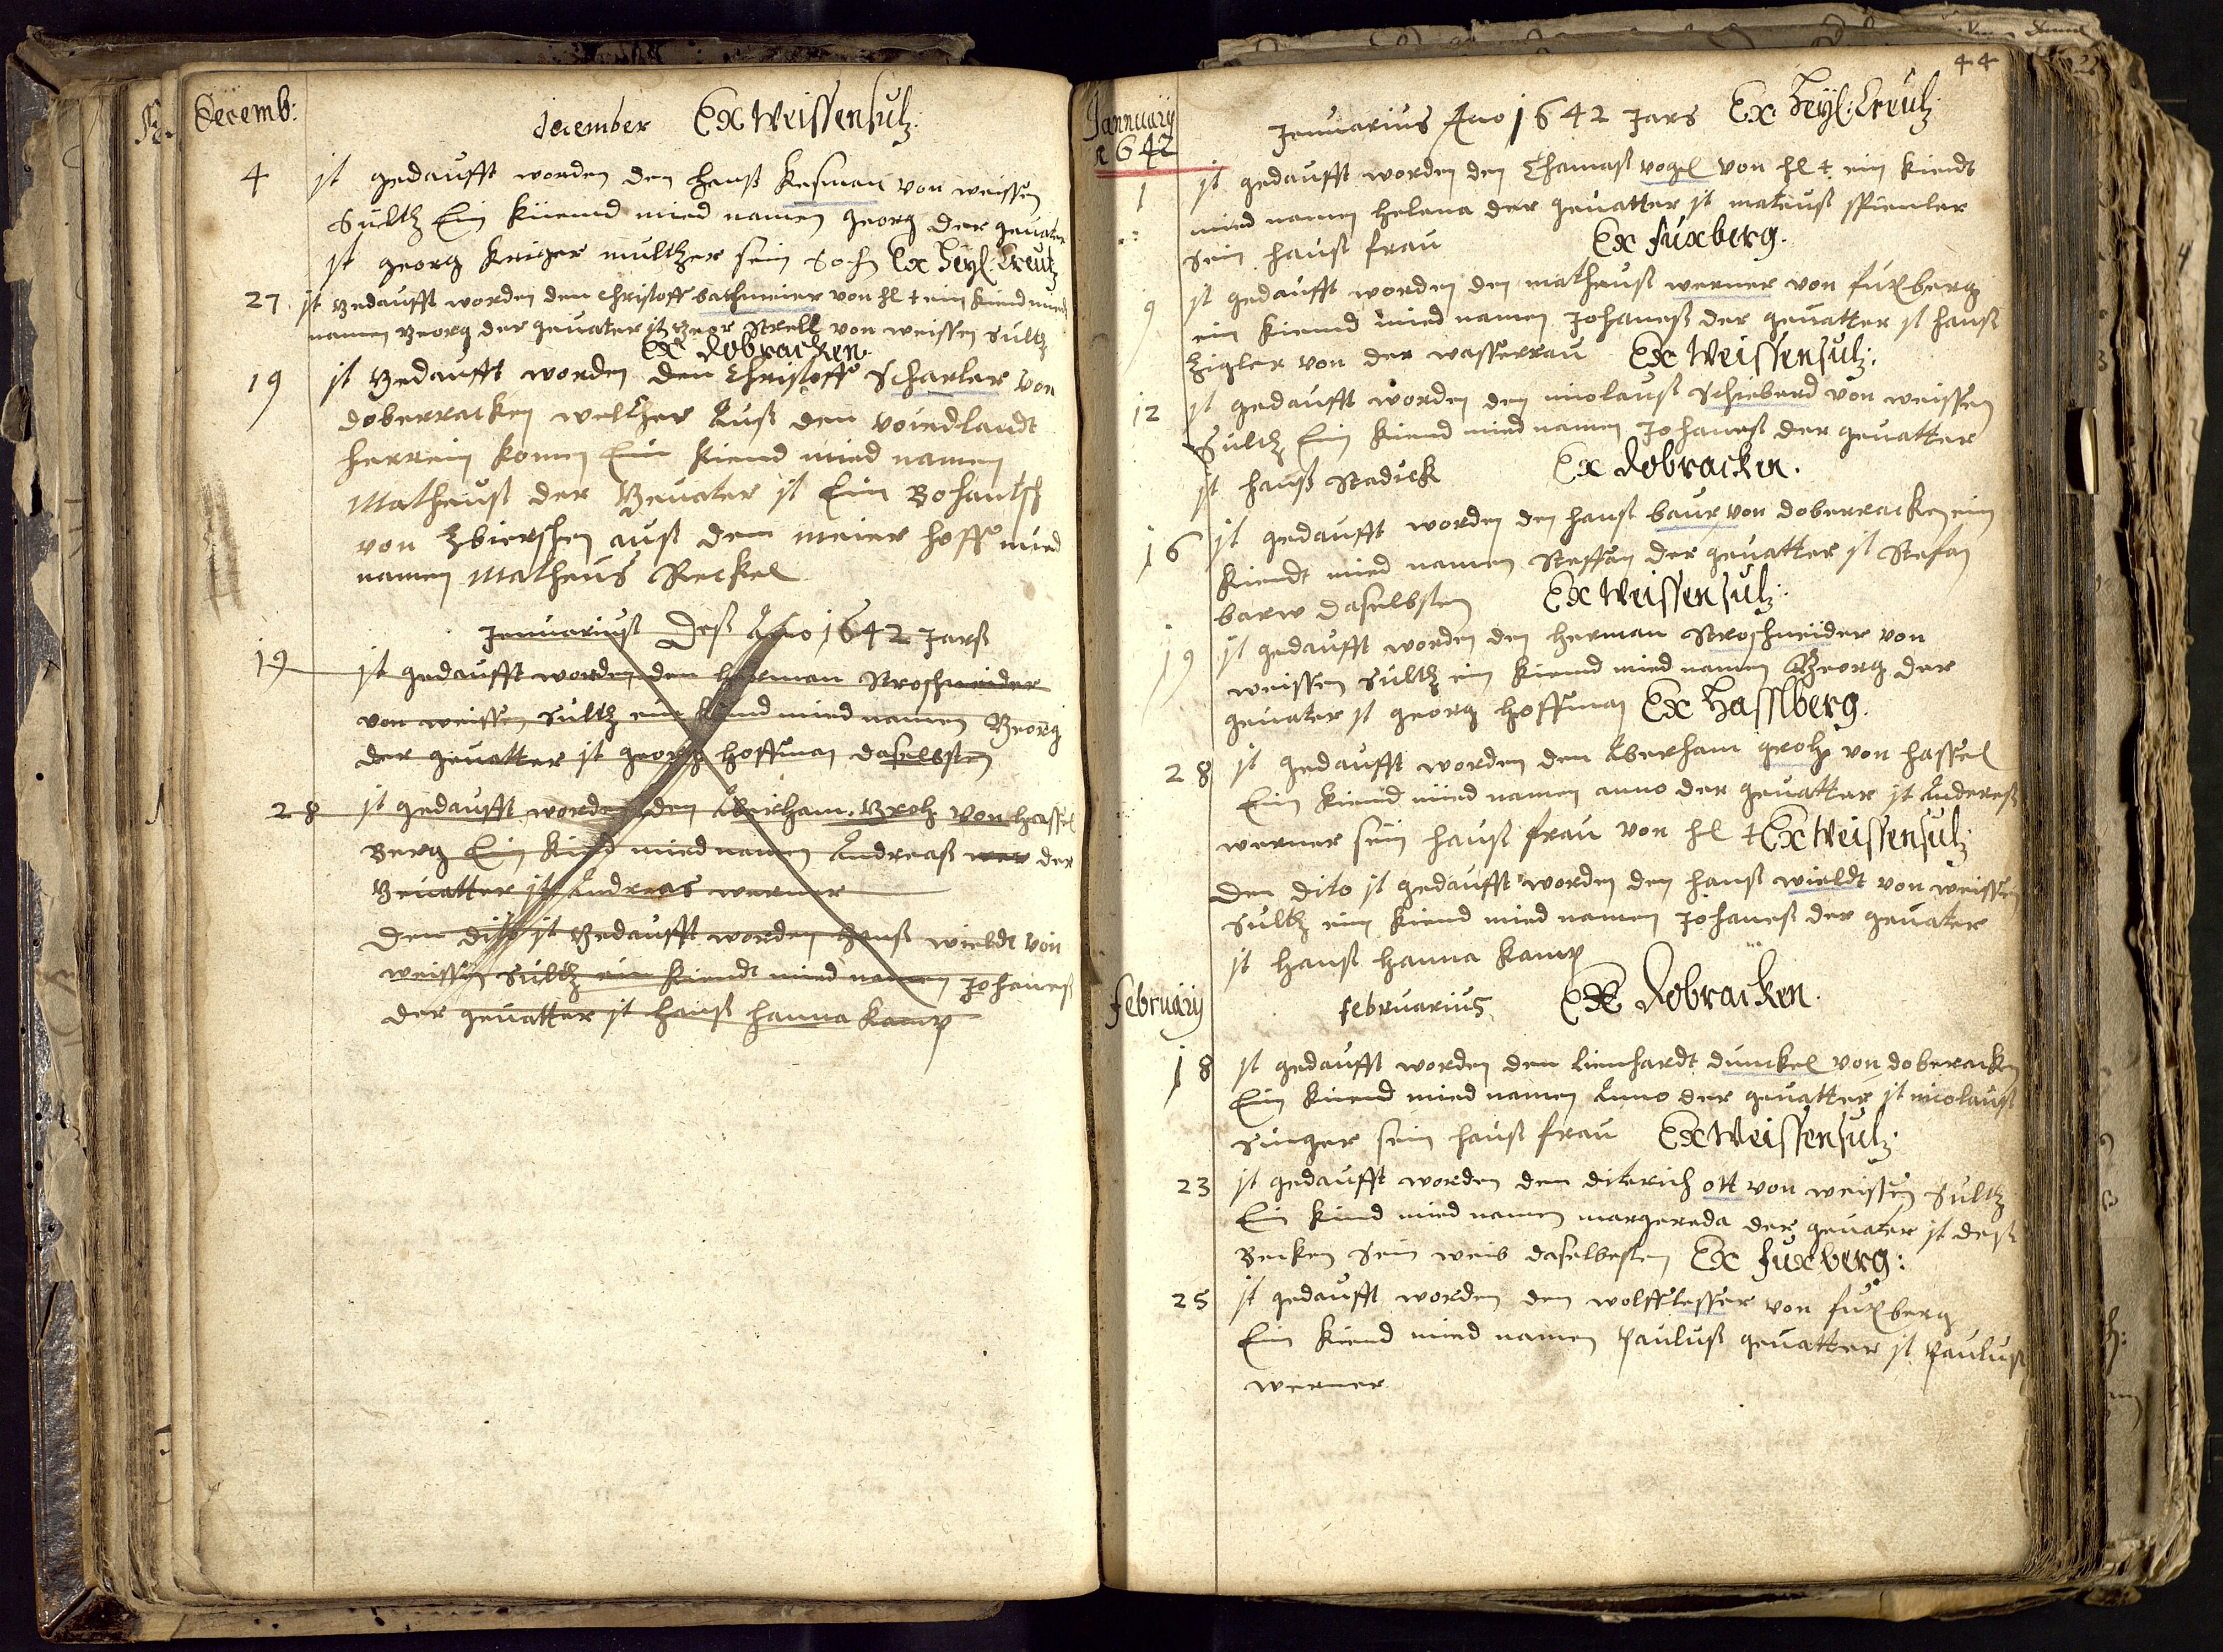 Decemb:
december Ex Weissensulz:
4 ist gedaufft worden den hanß Kesman von weissen
Sultz Ein kiend mied namen georg der gevater
ist georg kriger multzer sein Sohn Ex Heyl: Creutz
27 ist gedaufft worden den christoff bachmeier von hl + ein kiend mied
namen georg der gevater ist geor Strell von weissen Sultz
Ex dobracken.
19 ist gedaufft worden den Christoff Scharler von
doberracken welcher Auß den voiedlandt
herrein komen Ein kiend mied namen
Matheuß der gevater ist Ein
von auß dem meier hoff mied
namen Matheus Reckel
Jenuariuß deß Ano 1642 Jarß
19 ist gedaufft worden den herman Stroschneider
von weissen Sultz ein kiend mied namen Georg
der gevatter ist georg hoffman daselbsten
28 ist gedaufft worden den Aberham Groh von hassel
Berg Ein kind mied namen Andreaß wer der
Gevatter ist Andreas werner
Den dito ist gedaufft worden hanß wieldt von
weissen Sultz ein kiendt mied namen Johaneß
der gevatter ist hanß hanna kamp
44
Jannuarij
1642
Jenuarius Ano 1642 Jars Ex Heyl: Creutz
1 ist gedaufft worden den Thamaß vogel von hl + ein kiendt
mied namen helena der gevatter ist mateuß
sein hauß frau Ex fuxberg.
9 ist gedaufft worden den matheuß werner von fuxberg
ein kiend mied namen Johaneß der gevatter ist hanß
Zigler von der wasserrau Ex Weissensulz:
12 ist gedaufft worden den nicolauß Schieberd von weissen
Sultz Ein kiend mied namen Johaneß der gevatter
ist hanß Radick Ex dobracken.
16 ist gedaufft worden den hanß baur von doberracken ein
kiendt mied namen Steffan der gevatter ist Stefan
barw daselbsten Ex Weissensulz:
19 ist gedaufft worden den herman Stroschneider von
weissen Sultz ein kiend mied namen Georg der
gevater ist georg hoffman Ex Hasslberg.
28 ist gedaufft worden den Aberham groh von hassel
Ein kiend mied namen anno der gevatter ist Andereß
werner sein hauß frau von hl + Ex Weissensulz
Den dito ist gedaufft worden den hanß wieldt von weissen
Sultz ein kiend mied namen Johaneß der gevater
ist hanß hanna kamp
Februarij
februarius Ex dobracken.
18 ist gedaufft worden den lienhardt dunckel von doberacken
Ein kiend mied namen Anno der gevatter ist nicolauß
Singer sein hauß frau Ex Weissensulz.
23 ist gedaufft worden den diterich ott von weissen Sultz
Ein kind mied namen margereda der gevater ist deß
Becken Sein weib daselbesten Ex fuxberg:
25 ist gedaufft worden den wolff lesser von fuxberg
Ein kiend mied namen Pauluß gevatter ist Pauluß
werner